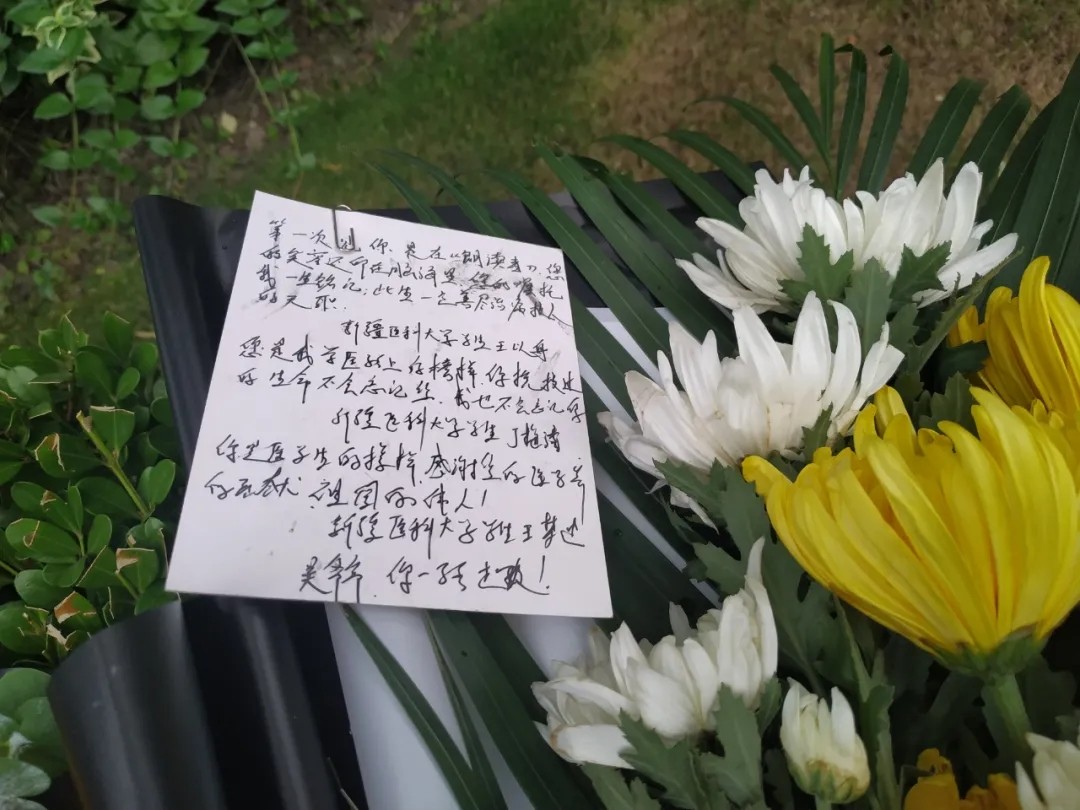 第一次见你,是在《朗读者》,您
的文字还印在脑海里,您的嘱托
我一生铭记;此生一定善尽治病救人
的天职.
新疆医科大学学生王以
您是我学医路上的榜样.你挽救过
的生命不会忘记您.我也不会忘记你
新疆医科大学学生 丁
你是医学生的榜样,感谢您的医学
的贡献.祖国的伟人!
新疆医科大学学生王
吴爷爷.你一路走好!